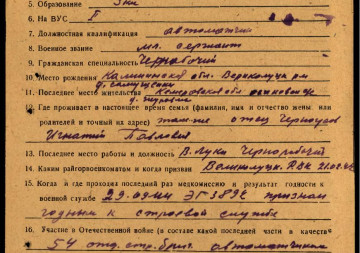 5. Образование 3 кл
6. На ВУС I
7. Должностная квалификация автоматчик
8. Военное звание мл. сержант
9. Гражданская специальность Чернорабочий
10. Место рождения Калининской обл. Великолуц р-н
11. Последнее место жительства Кемеровской обл.
12. Где проживает в настоящее время семья (фамилия, имя и отчество жены или
родителей и точный их адрес) там-же отец
Игнатий Павлович
13. Последнее место работы и должность В. Луки Чернорабочий
14. Каким райгорвоенкоматом и когда призван Великолуц. РВК
15. Когда и где проходил последний раз медкомиссию и результат годности к
военной службе ЭГ 3892 признан
годным к строевой службе
16. Участие в Отечественной войне (в составе какой последней части и в качестве
54 отд. стр. бриг. автоматчиком